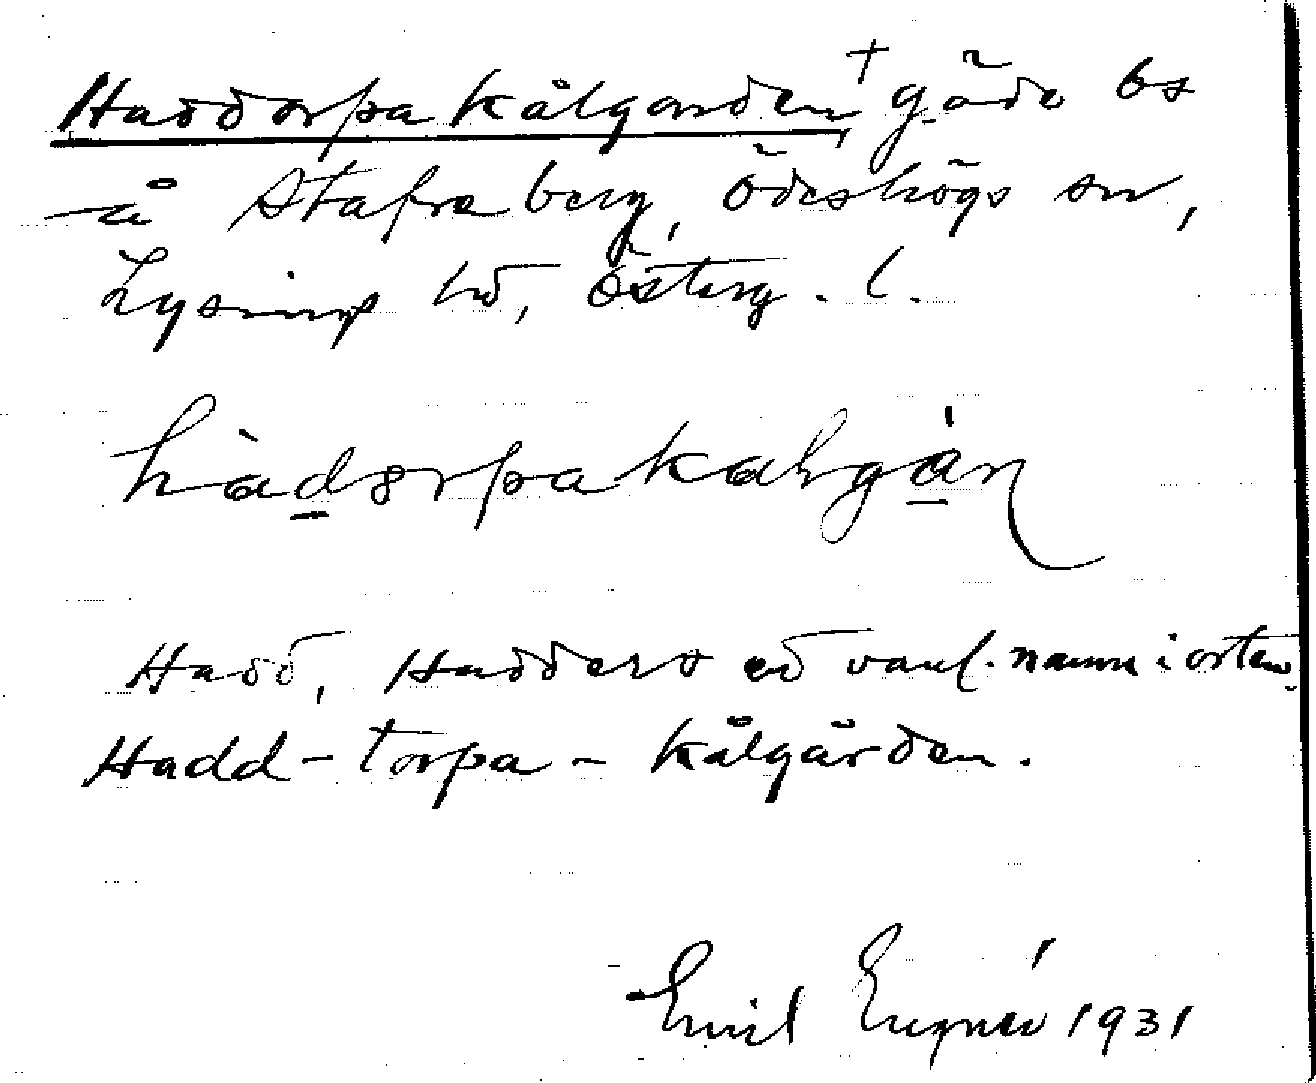 Haddorpa kålgården + gärde bs
å Stafra berg, Ödeshögs sn,
Lysings hd, Österg. l.
hàdorpakalvgán
Hadd, Hadders ed vanl. namn i orten.
Hadd-torpa-kålgården.
Emil Engnér 1931